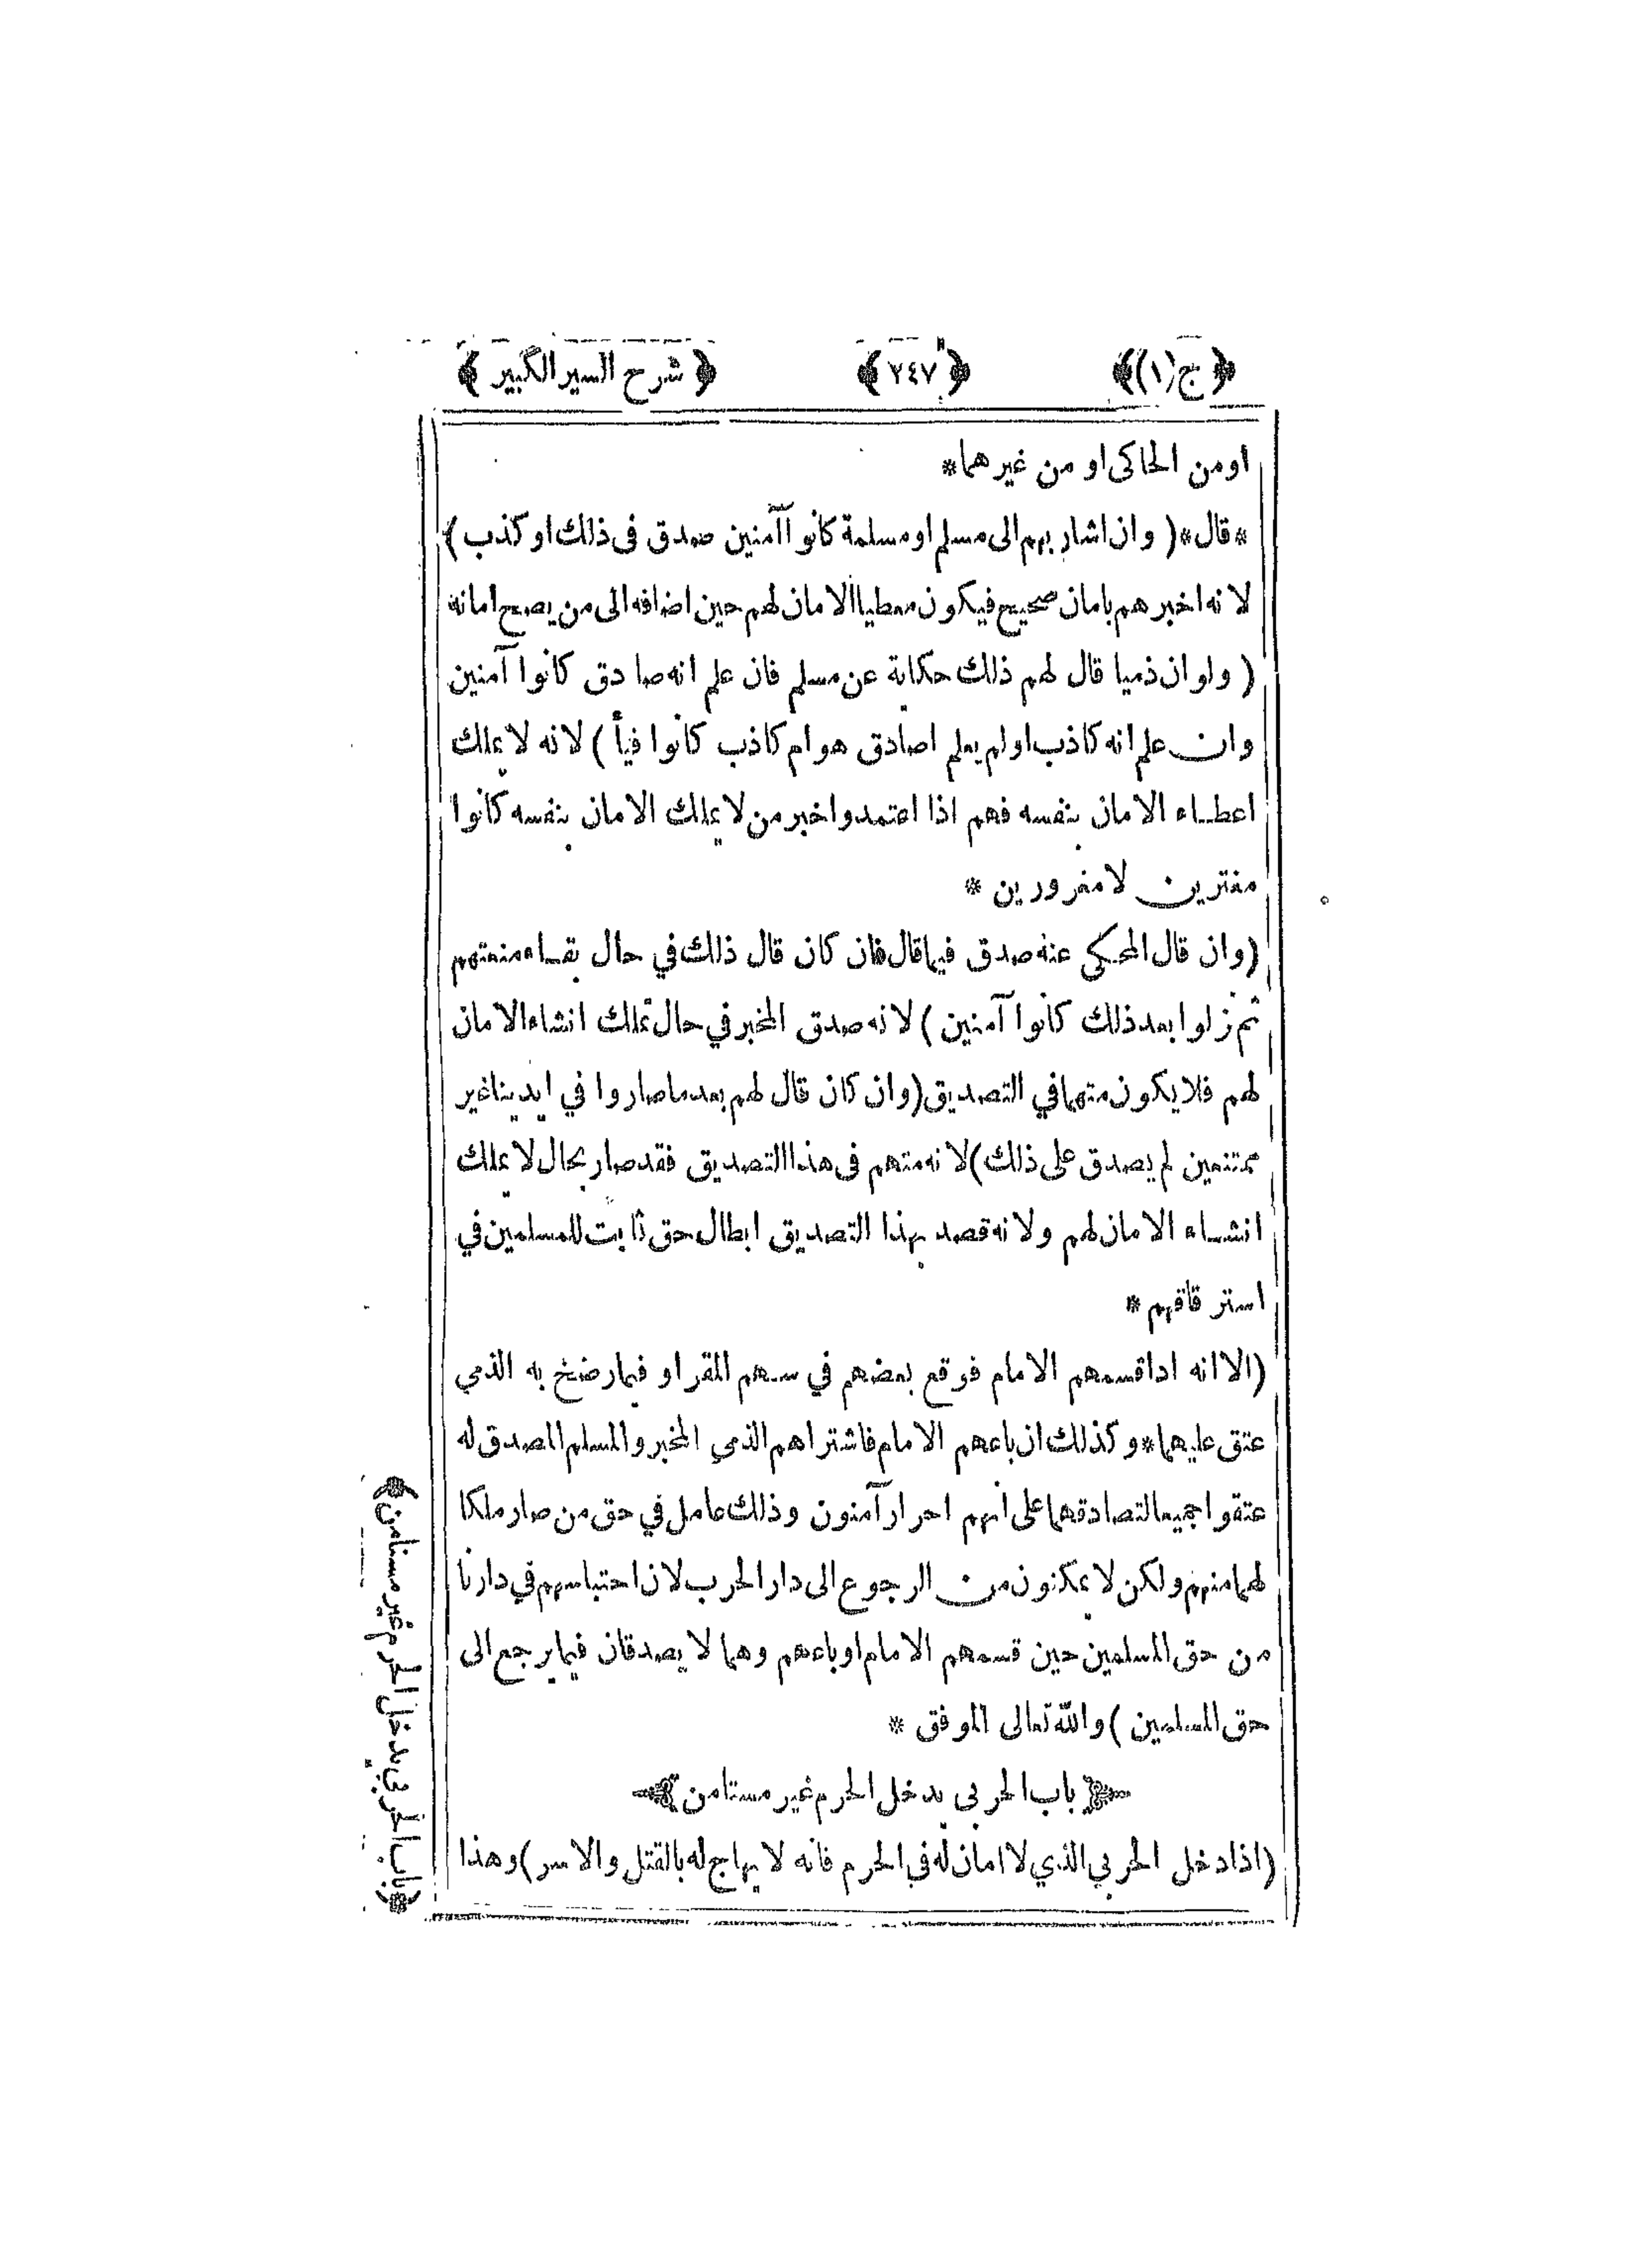 ﴿ ج (١) ﴾ ﴿ ٢٤٧ ﴾ ﴿ شرح السير الكبير ﴾
او من الحاكى او من غيرهما *
* قال * ( وان اشار بهم الى مسلم او مسلمة كانوا آمنين صدق فى ذلك او كذب )
لانه اخبرهم بامان صحيح فيكون معطيا الامان لهم حين اضافه الى من يصح امانه
( ولو ان ذميا قال لهم ذلك حكاية عن مسلم فان علم انه صادق كانوا آمنين
وان علم انه كاذب او لم يعلم اصادق هو ام كاذب كانوا فيأ ) لانه لا يملك
اعطاء الامان بنفسه فهم اذا اعتمدوا خبر من لا يملك الامان بنفسه كانوا
مغترين لا مغرورين *
( وان قال المحكي عنه صدق فيما قال فان كان قال ذلك في حال بقاء منعتهم
ثم نزلوا بعد ذلك كانوا آمنين ) لانه صدق المخبر في حال تملك انشاء الامان
لهم فلا يكون متهما في التصديق ( وان كان قال لهم بعد ما صاروا في ايدينا غير
ممتنعين لم يصدق على ذلك ) لانه متهم فى هذا التصديق فقد صار بحال لا يملك
انشاء الامان لهم ولانه قصد بهذا التصديق ابطال حق ثابت للمسلمين في
استرقاقهم *
( الا انه اذا قسمهم الامام فوقع بعضهم في سهم المقر او فيما رضخ به الذمي
عتق عليهما * وكذلك ان باعهم الامام فاشتراهم الذمي المخبر والمسلم المصدق له
عتقوا جميعا لتصادقهما على انهم احرار آمنون وذلك عامل في حق من صار ملكا
لهما منهم ولكن لا يمكنون من الرجوع الى دار الحرب لان احتباسهم في دارنا
من حق المسلمين حين قسمهم الامام او باعهم وهما لا يصدقان فيما يرجع الى
حق المسلمين ) والله تعالى الموفق *
باب الحربى يدخل الحرم غير مستامن
( اذا دخل الحربي الذي لا امان له في الحرم فانه لا يهاج له بالقتل والاسر ) وهذا
﴿ باب الحربي يدخل الحرم غير مستامن ﴾